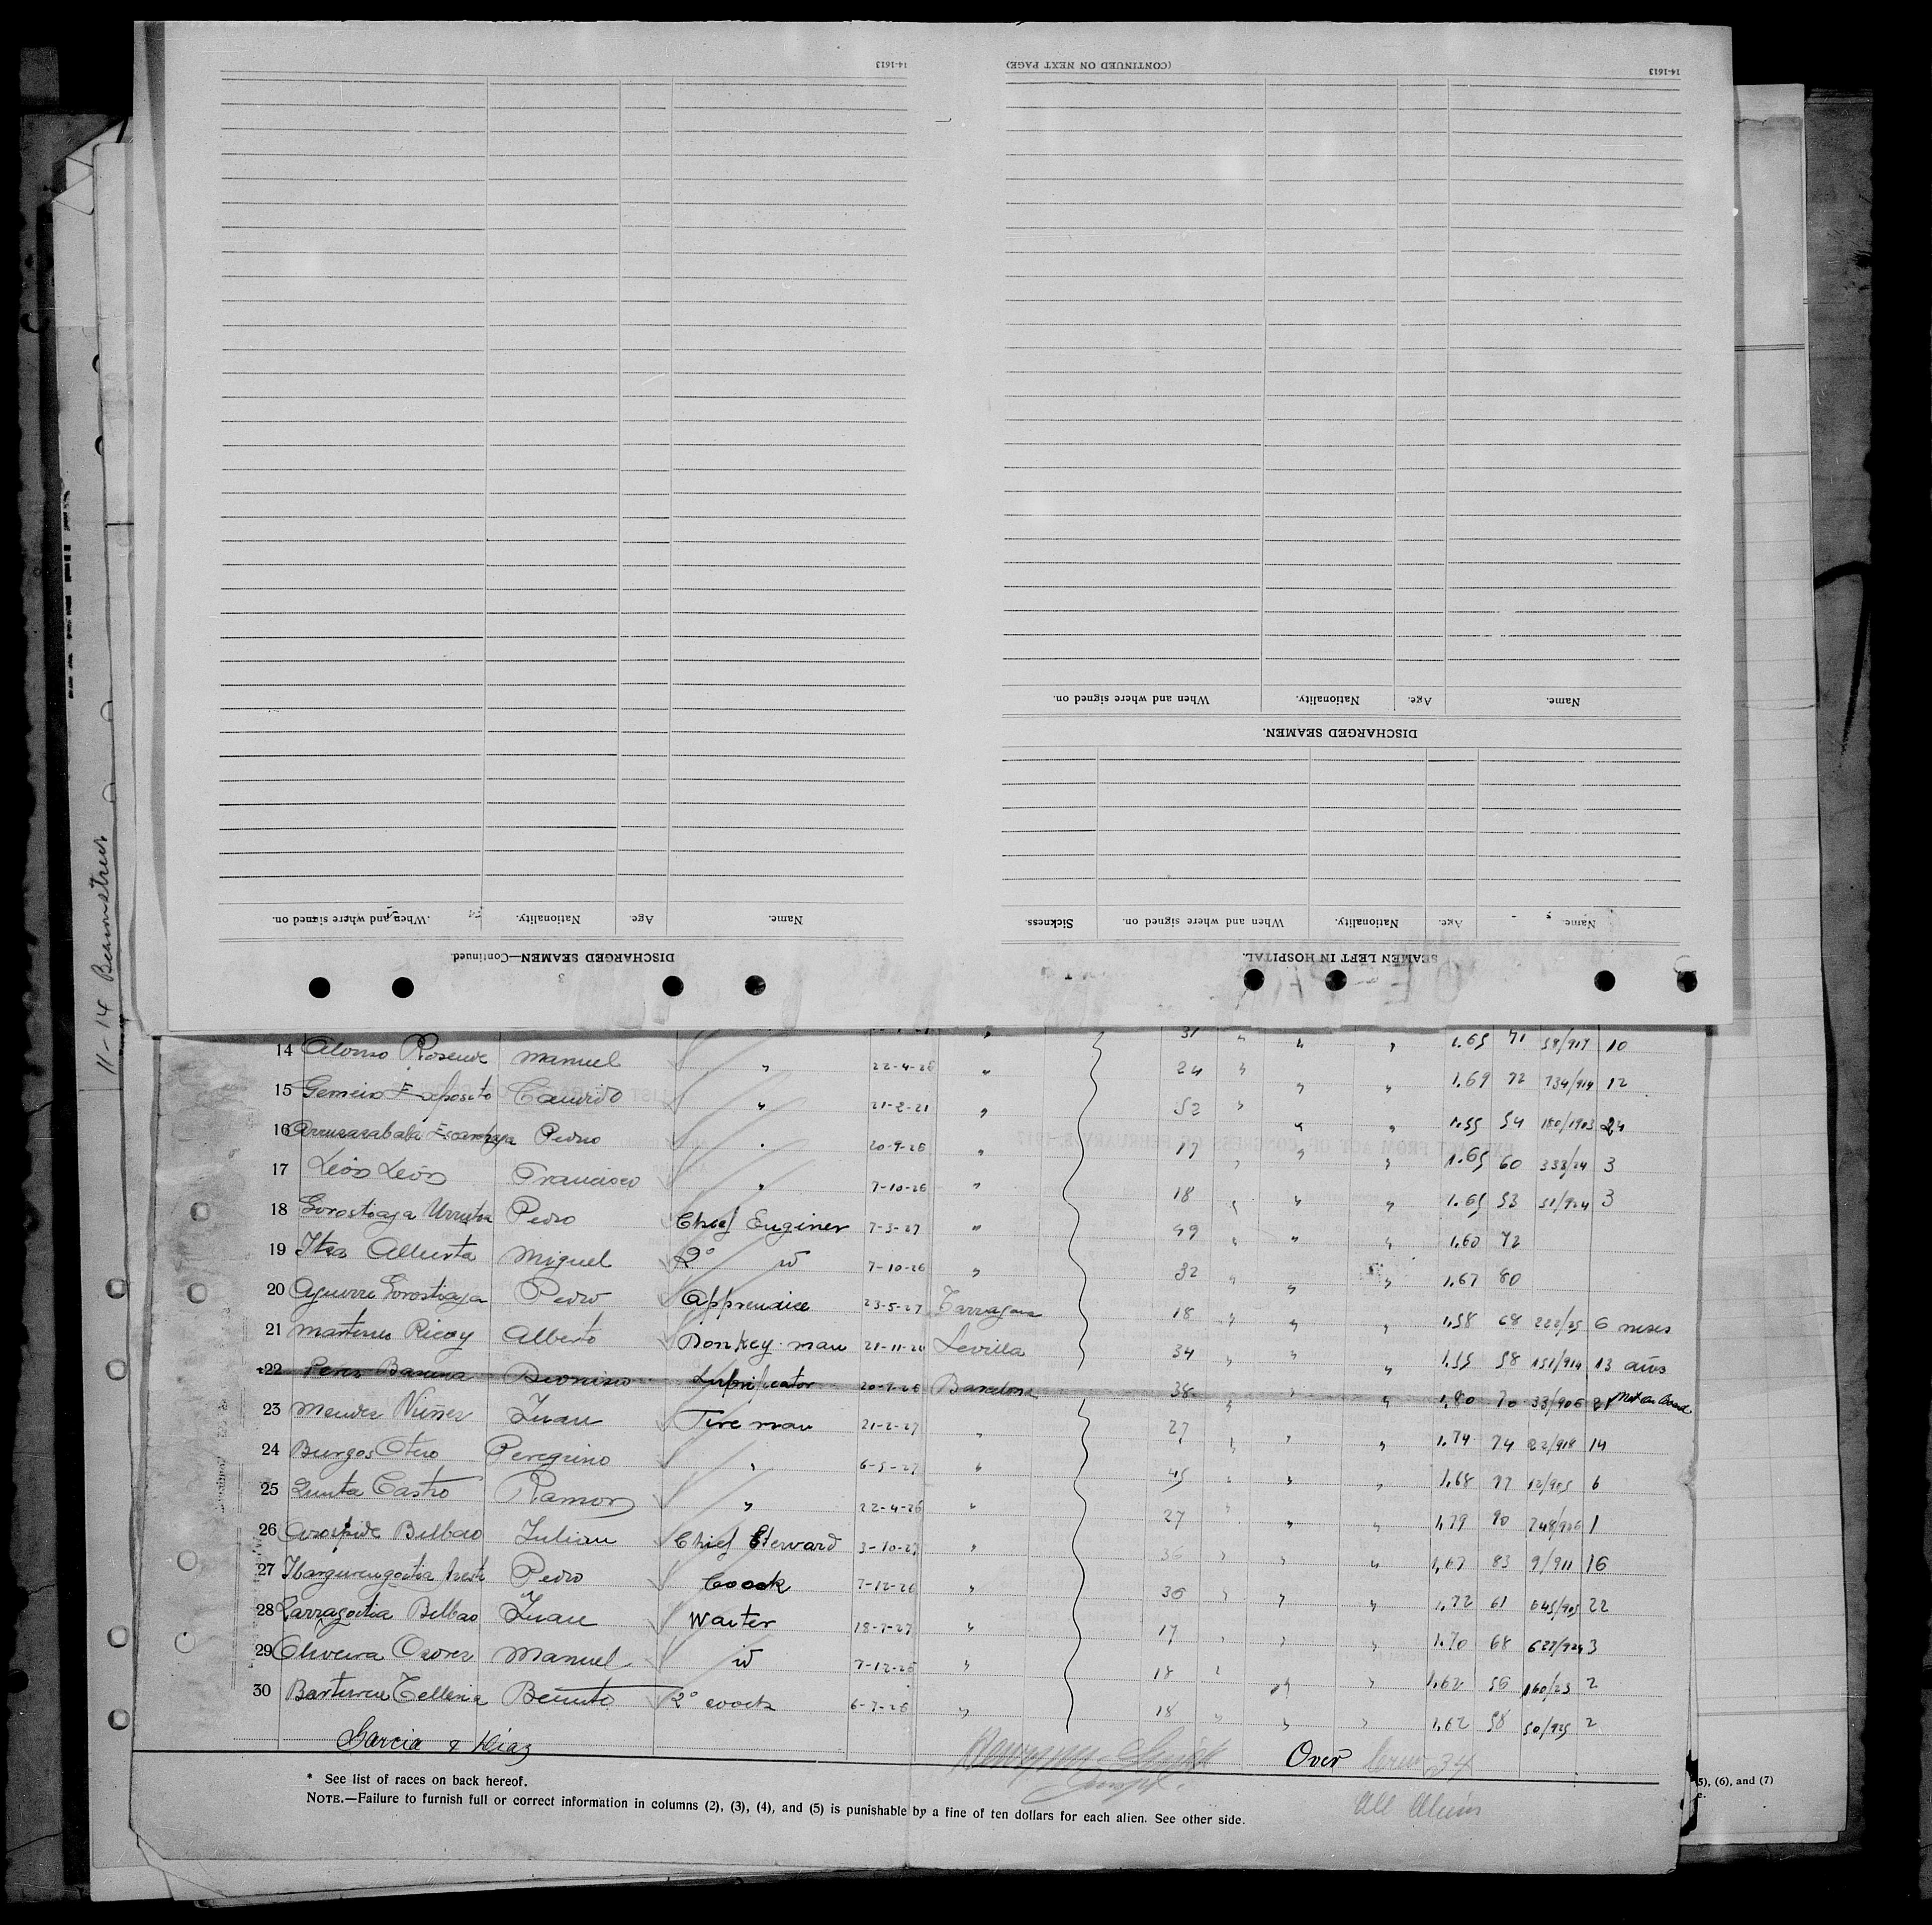 14-1613
(CONTINUED ON NEXT PAGE)
14-1613
Name. Age. Nationality. When and where signed on.
DISCHARGED SEAMEN.
Name. Age. Nationality. When and where signed on. Sickness.
SEAMEN LEFT IN HOSPITAL.
Name. Age. Nationality. When and where signed on.
DISCHARGED SEAMEN—Continued.
3
11-14
31 " " " 1.65 71 58/917 10
14 Alonso Rosende Manuel " 22-4-26 " 24 " " " 1.69 72 734/919 12
15 Expósito " 21-2-21 " 52 " " " 1.55 54 180/1903 24
16 Pedro " 20-9-26 " 17 " " " 1.65 60 333/24 3
17 León León Francisco " 7-10-26 " 18 " " " 1.65 53 51/924 3
18 Gorostiaga Urrutia Pedro Chief Enginer 7-3-27 " 49 " " " 1,60 72
19 Miguel 2º id 7-10-26 " 32 " " " 1,67 80
20 Aguirre Gorostiaga Pedro Apprendice 23-5-27 Tarragona 18 " " " 1,58 68 222/25 6 meses
21 Martinez Ricoy Alberto Donkey man 21-11-26 Sevilla 34 " " " 1,55 58 151/914 13 años
22 Perez Dionisio Lubrificator 20-9-26 Barcelona 38 " " " 1,80 70 33/906 21 Not on board
23 Mendez Nuñez Juan Fireman 21-2-27 " 27 " " " 1.74 74 22/918 14
24 Burgos Otero Peregrino " 6-5-27 " 45 " " " 1,68 77 12/905 6
25 Castro Ramon " 22-4-26 " 27 " " " 1,79 90 248/926 1
26 Arospide Bilbao Julian Chief Steward 3-10-27 " 36 " " " 1,67 83 9/911 16
27 Pedro Coock 7-12-26 " 36 " " " 1,72 61 645/905 22
28 Larragoitia Bilbao Juan Waiter 18-7-27 " 17 " " " 1.70 68 627/924 3
29 Oliveira Manuel id 7-12-26 " 18 " " " 1,62 56 160/25 2
30 Telleria Benito 2º coock 6-7-26 " 18 " " " 1,62 58 50/925 2
Garcia & Diaz Over Crew 34
All Aliens
* See list of races on back hereof.
NOTE.—Failure to furnish full or correct information in columns (2), (3), (4), and (5) is punishable by a fine of ten dollars for each alien. See other side.
5), (6), and (7)
e.